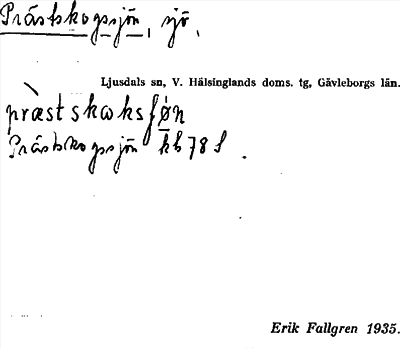 Prästskogssjön, sjö,
Ljusdals sn, V. Hälsinglands doms. tg, Gävleborgs län.
præstskωksʃø̀n
Prästskogssjön kb 78 S.
Erik Fallgren 1935.